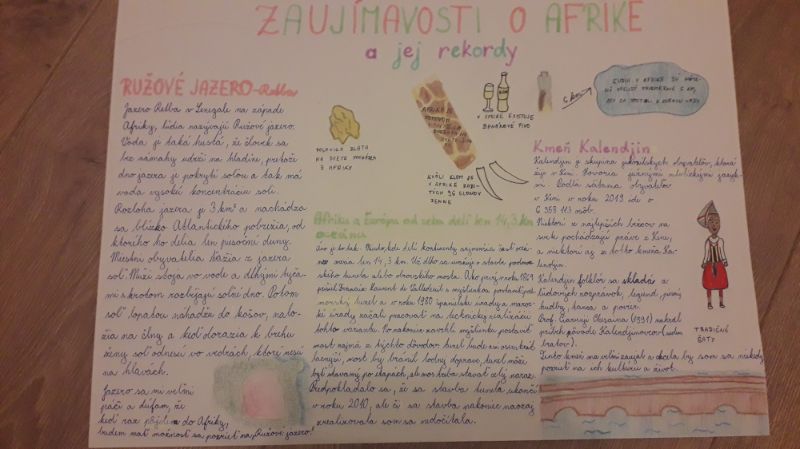 ZAUJÍMAVOSTI O AFRIKE
a jej rekordy
RUŽOVÉ JAZERO-Retba
Jazero Retba v Senegale na západe
Afriky, ľudia nazývajú Ružové jazero.
Voda je taká hustá, že človek sa
bez námahy udrží na hladine, pretože
dno jazera je pokryté soľou a tak má
voda vysokú koncentráciu soli.
Rozloha jazera je 3 km² a nachádza
sa blízko Atlantického pobrežia, od
ktorého ho delia len piesočné duny.
Miestni obyvatelia ťažia z jazera
soľ. Muži stoja vo vode a dlhými tyča-
mi s hrotom rozbíjajú soľné dno. Potom
soľ lopatou nahádžu do košov, nalo-
žia na člny a keď dorazia k brehu
ženy soľ odnesú vo vedrách, ktoré nesú
na hlavách.
Jazero sa mi veľmi
páči a dúfam, že
keď raz pôjdem do Afriky,
budem mať možnosť sa pozrieť na "Ružové jazero".
POLOVICA ZLATA
NA SVETE POCHÁDZA
Z AFRIKY
V AFRIKE EXISTUJE
BANÁNOVÉ PIVO
KVÔLI KLOM JE
V AFRIKE ZABI-
TÝCH 96 SLONOV
DENNE
6 km
ĽUDIA V AFRIKE
Afriku a Európu od seba delí len 14,3 km
oceánu
Áno je to tak.
len 14,3 km. Už dlho sa uvažuje o stavbe podmor-
ského tunela alebo obrovského mosta. Ako prvý v roku 1869
prišiel Francúz Laurent de Villedeuil s myšlienkou postaviť pod-
morský tunel a v roku 1980 španielske úrady a maroc-
ké úrady začali pracovať na technickej realizácii
tohto variantu.
most najmä z týchto dôvodov: tunel bude asi omnoho
lacnejší, most by bránil lodnej doprave, tunel môže
byť stavaný po etapách, ale most treba stavať celý naraz.
Predpokladalo sa, že sa stavba tunela skončí
v roku 2040, ale či sa stavba nakoniec naozaj
zrealizovala som sa nedočítala.
Kmeň Kalendjin
Kalendjin je skupina východných obyvateľov, ktorá
žije v Keni. Hovoria južnými nilotickými jazyk-
mi. Podľa sčítania obyvateľov
v Keni v roku 2019 ide o
6 358 113 osôb.
Niektorí z najlepších bežcov na
svete pochádzajú práve z Kene,
a niektorí aj z tohto kmeňa Ka-
lendjin.
Kalendjin folklór sa skladá z
ľudových rozprávok, legiend, piesní
hudby, tanca a povier.
Prof. Ciarunji Chesaina (1991) napísal
príbeh pôvode Kalendjinovcov
Tento kmeň ma veľmi zaujal a chcela by som sa niekedy
pozrieť na ich kultúru a život.
TRADIČNÉ
ŠATY